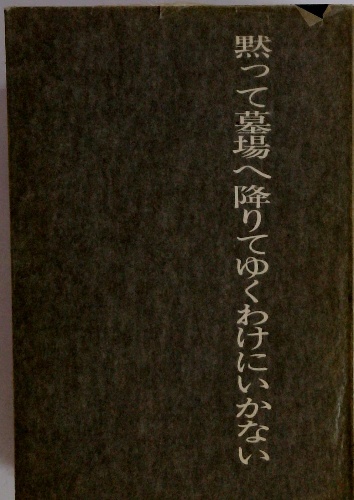 黙って墓場へ降りてゆくわけにいかない